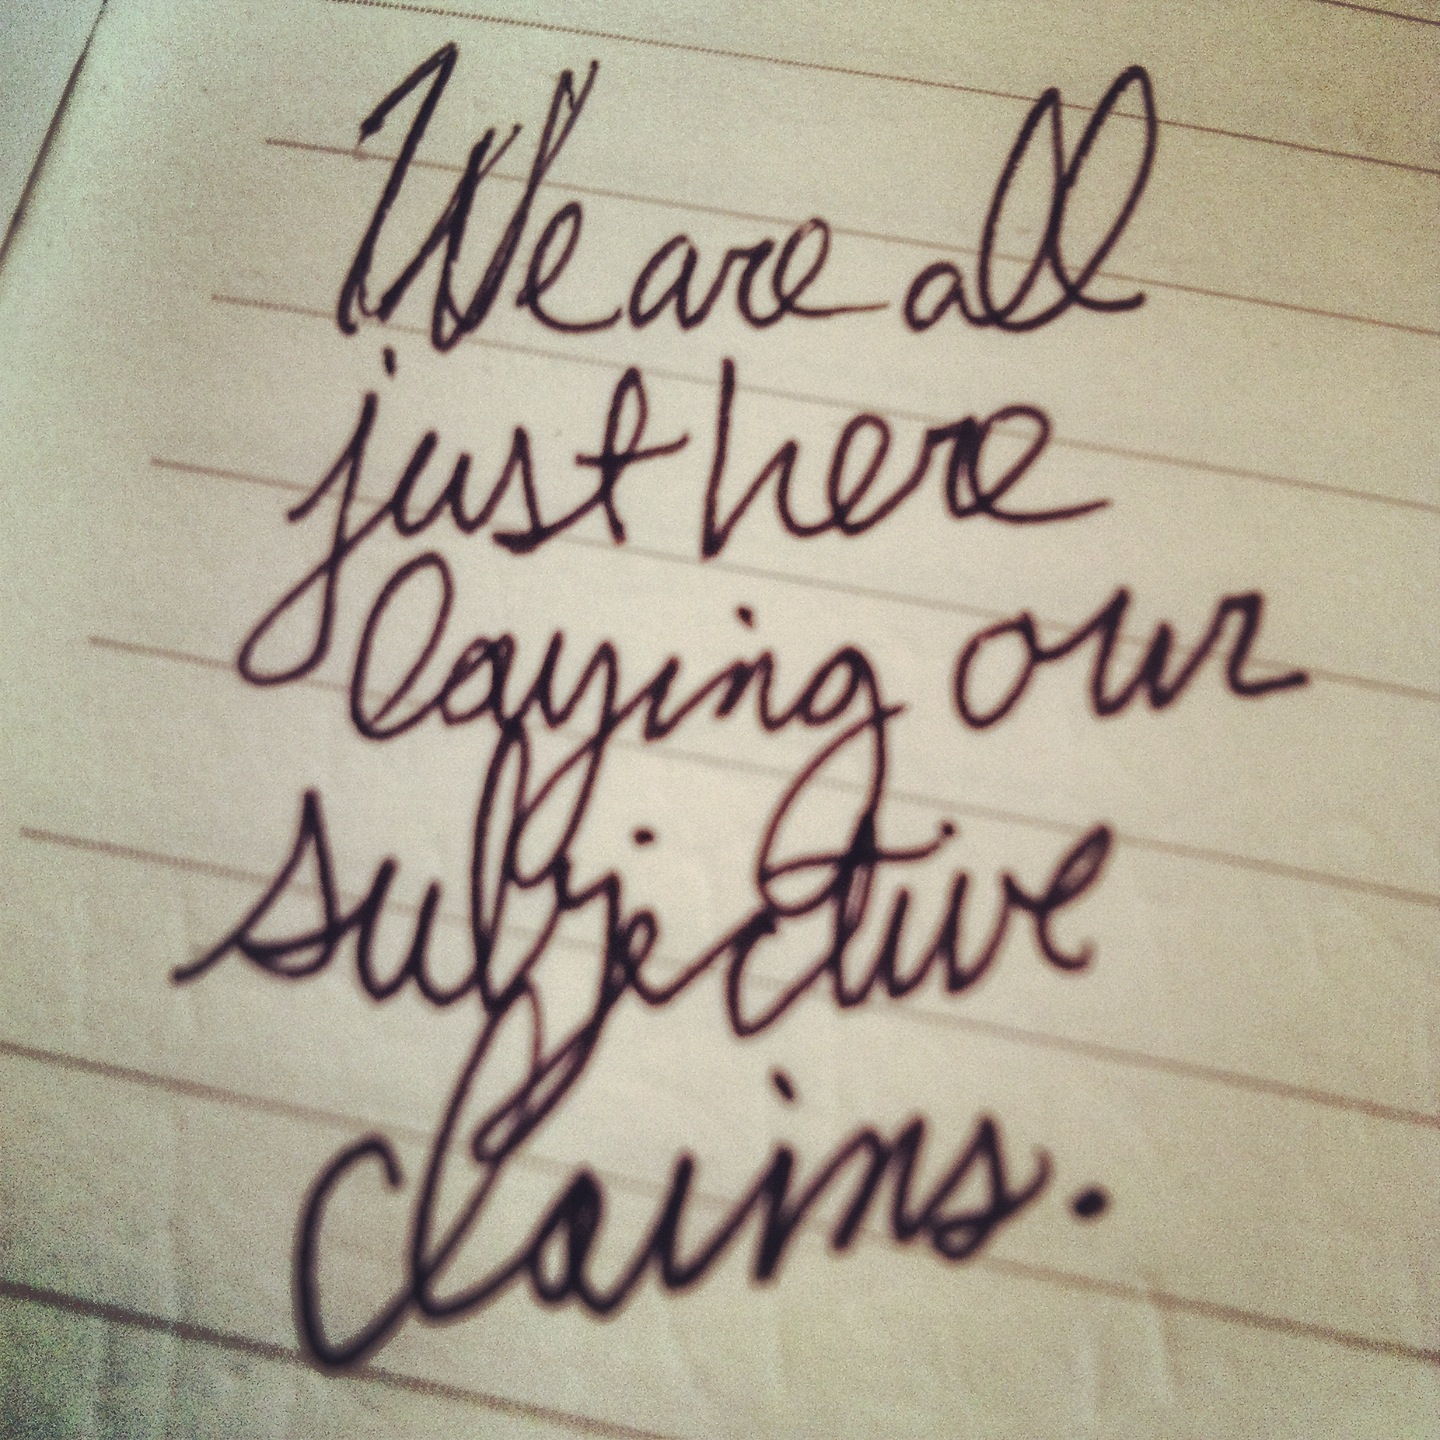 We are all
just here
laying our
subjective
claims.